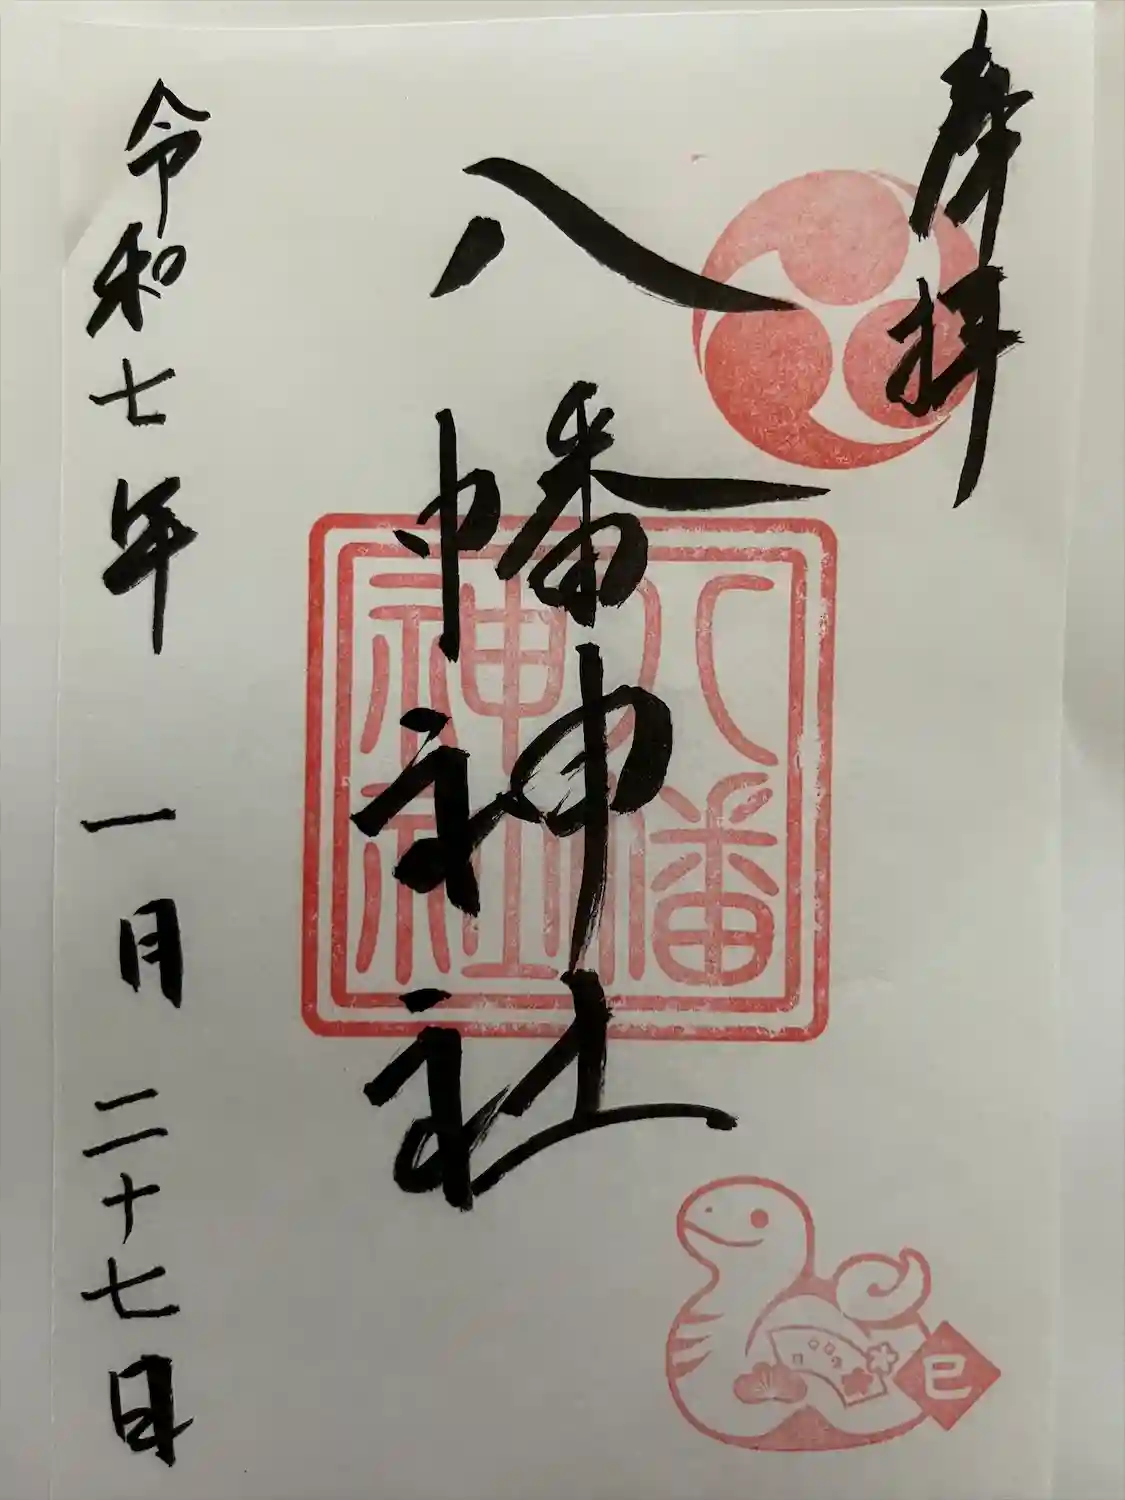 奉拝
八幡神社
八幡
神社
巳
令和七年 一月 二十七日